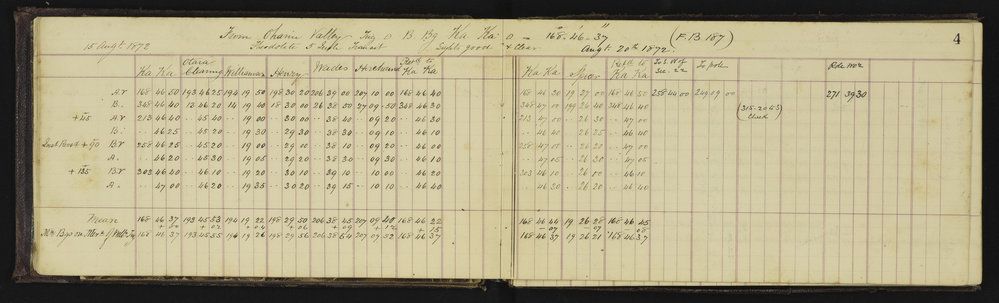 From Ohariu Valley Trig ☉ B Bg Ka Ka ☉ = 168·46·37 (F.B.187) 4
15 Augt. 1872 Theodolite 5 Inch Transit Light good & Clear Augt 20th 1872.
Ka Ka Otara Clearing Williamson Henry Wades Hirschwand Retd to Ka Ka Ka Ka Spicer Retd to Ka Ka To S.W of Sec. 22 To pole Pole No 2
Ar 168 46 50 193 46 25 194 19 50 198 30 20 206 39 00 207 10 00 168 46 40 168 46 30 19 27 00 168 46 50 258 44 00 249 09 00 271 39 30
B. 348 46 40 13 46 20 14 19 40 18 30 00 26 38 50 27 09 50 348 46 30 348 47 00 199 26 40 348 46 40
+45 Ar 213 46 40 .. 45 40 .. 19 00 .. 30 00 .. 38 40 .. 09 20 .. 46 30 213 47 00 .. 26 30 .. 47 00 (315·20·45) Check
B. .. 46 25 .. 45 20 .. 19 30 .. 29 30 .. 38 30 .. 09 10 .. 46 10 .. 46 40 .. 26 25 .. 46 40
+90 Br 258 46 25 .. 45 20 .. 19 00 .. 29 00 .. 38 10 .. 09 20 .. 46 00 258 47 00 .. 26 20 .. 47 00
A. .. 46 20 .. 45 30 .. 19 05 .. 29 20 .. 38 30 .. 09 30 .. 46 10 .. 47 05 .. 26 30 .. 47 05
+135 Br 303 46 40 .. 46 10 .. 19 20 .. 30 10 .. 39 10 .. 10 00 .. 46 20 303 46 10 .. 26 00 .. 46 10
A. .. 47 00 .. 46 20 .. 19 35 .. 30 20 .. 39 15 .. 10 10 .. 46 40 .. 46 30 .. 26 20 .. 46 40
Mean 168 46 37 193 45 53 194 19 22 198 29 50 206 38 45 207 09 40 168 46 22 168 46 44 19 26 28 168 46 45
+ 00 + 02 + 04 + 06 + 09 + 12 + 15 - 07 - 07 - 08
168 46 37 193 45 55 194 19 26 198 29 56 206 38 54 207 09 52 168 46 37 168 46 37 19 26 21 168 46 37